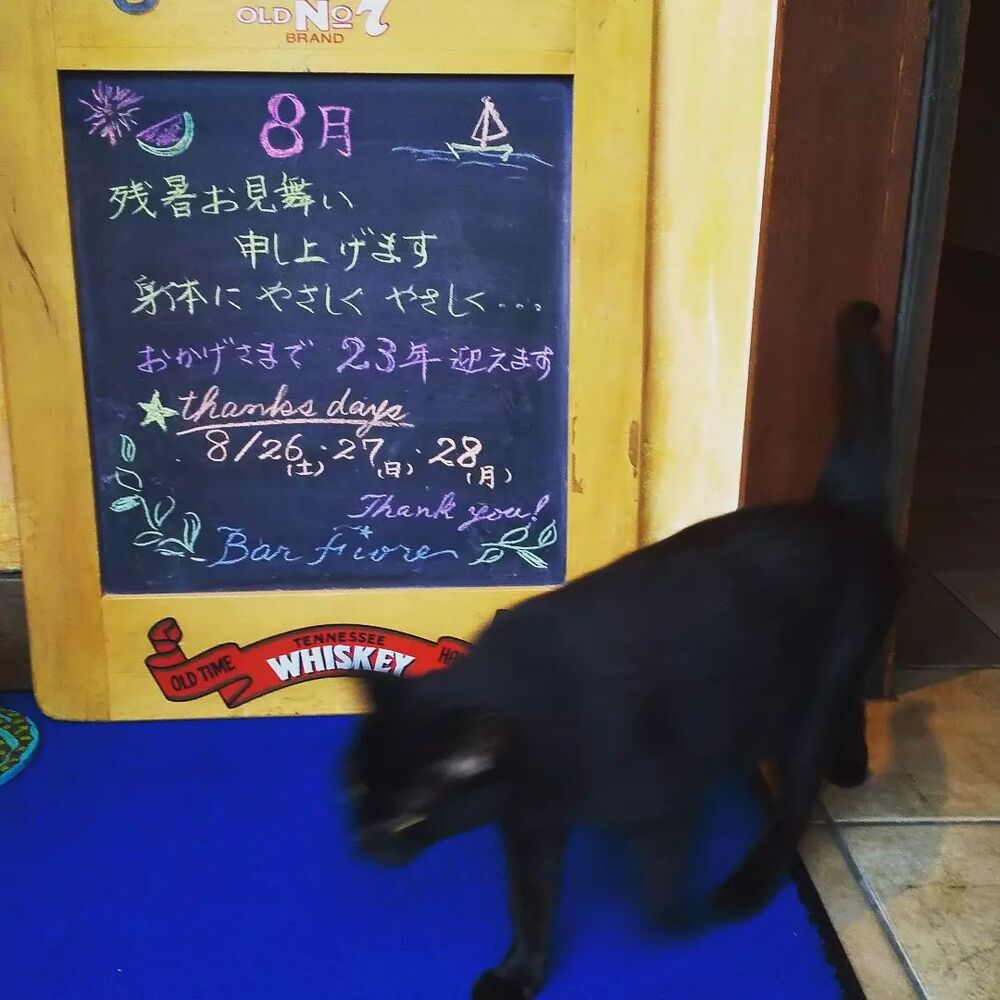 OLD No 7
BRAND
8月
残暑お見舞い
申し上げます
身体にやさしく やさしく・・・
おかげさまで 23年 迎えます
thanks days
8/26(土)・27(日)・28(月)
Thank you!
Bar Fiore
TENNESSEE
OLD TIME WHISKEY